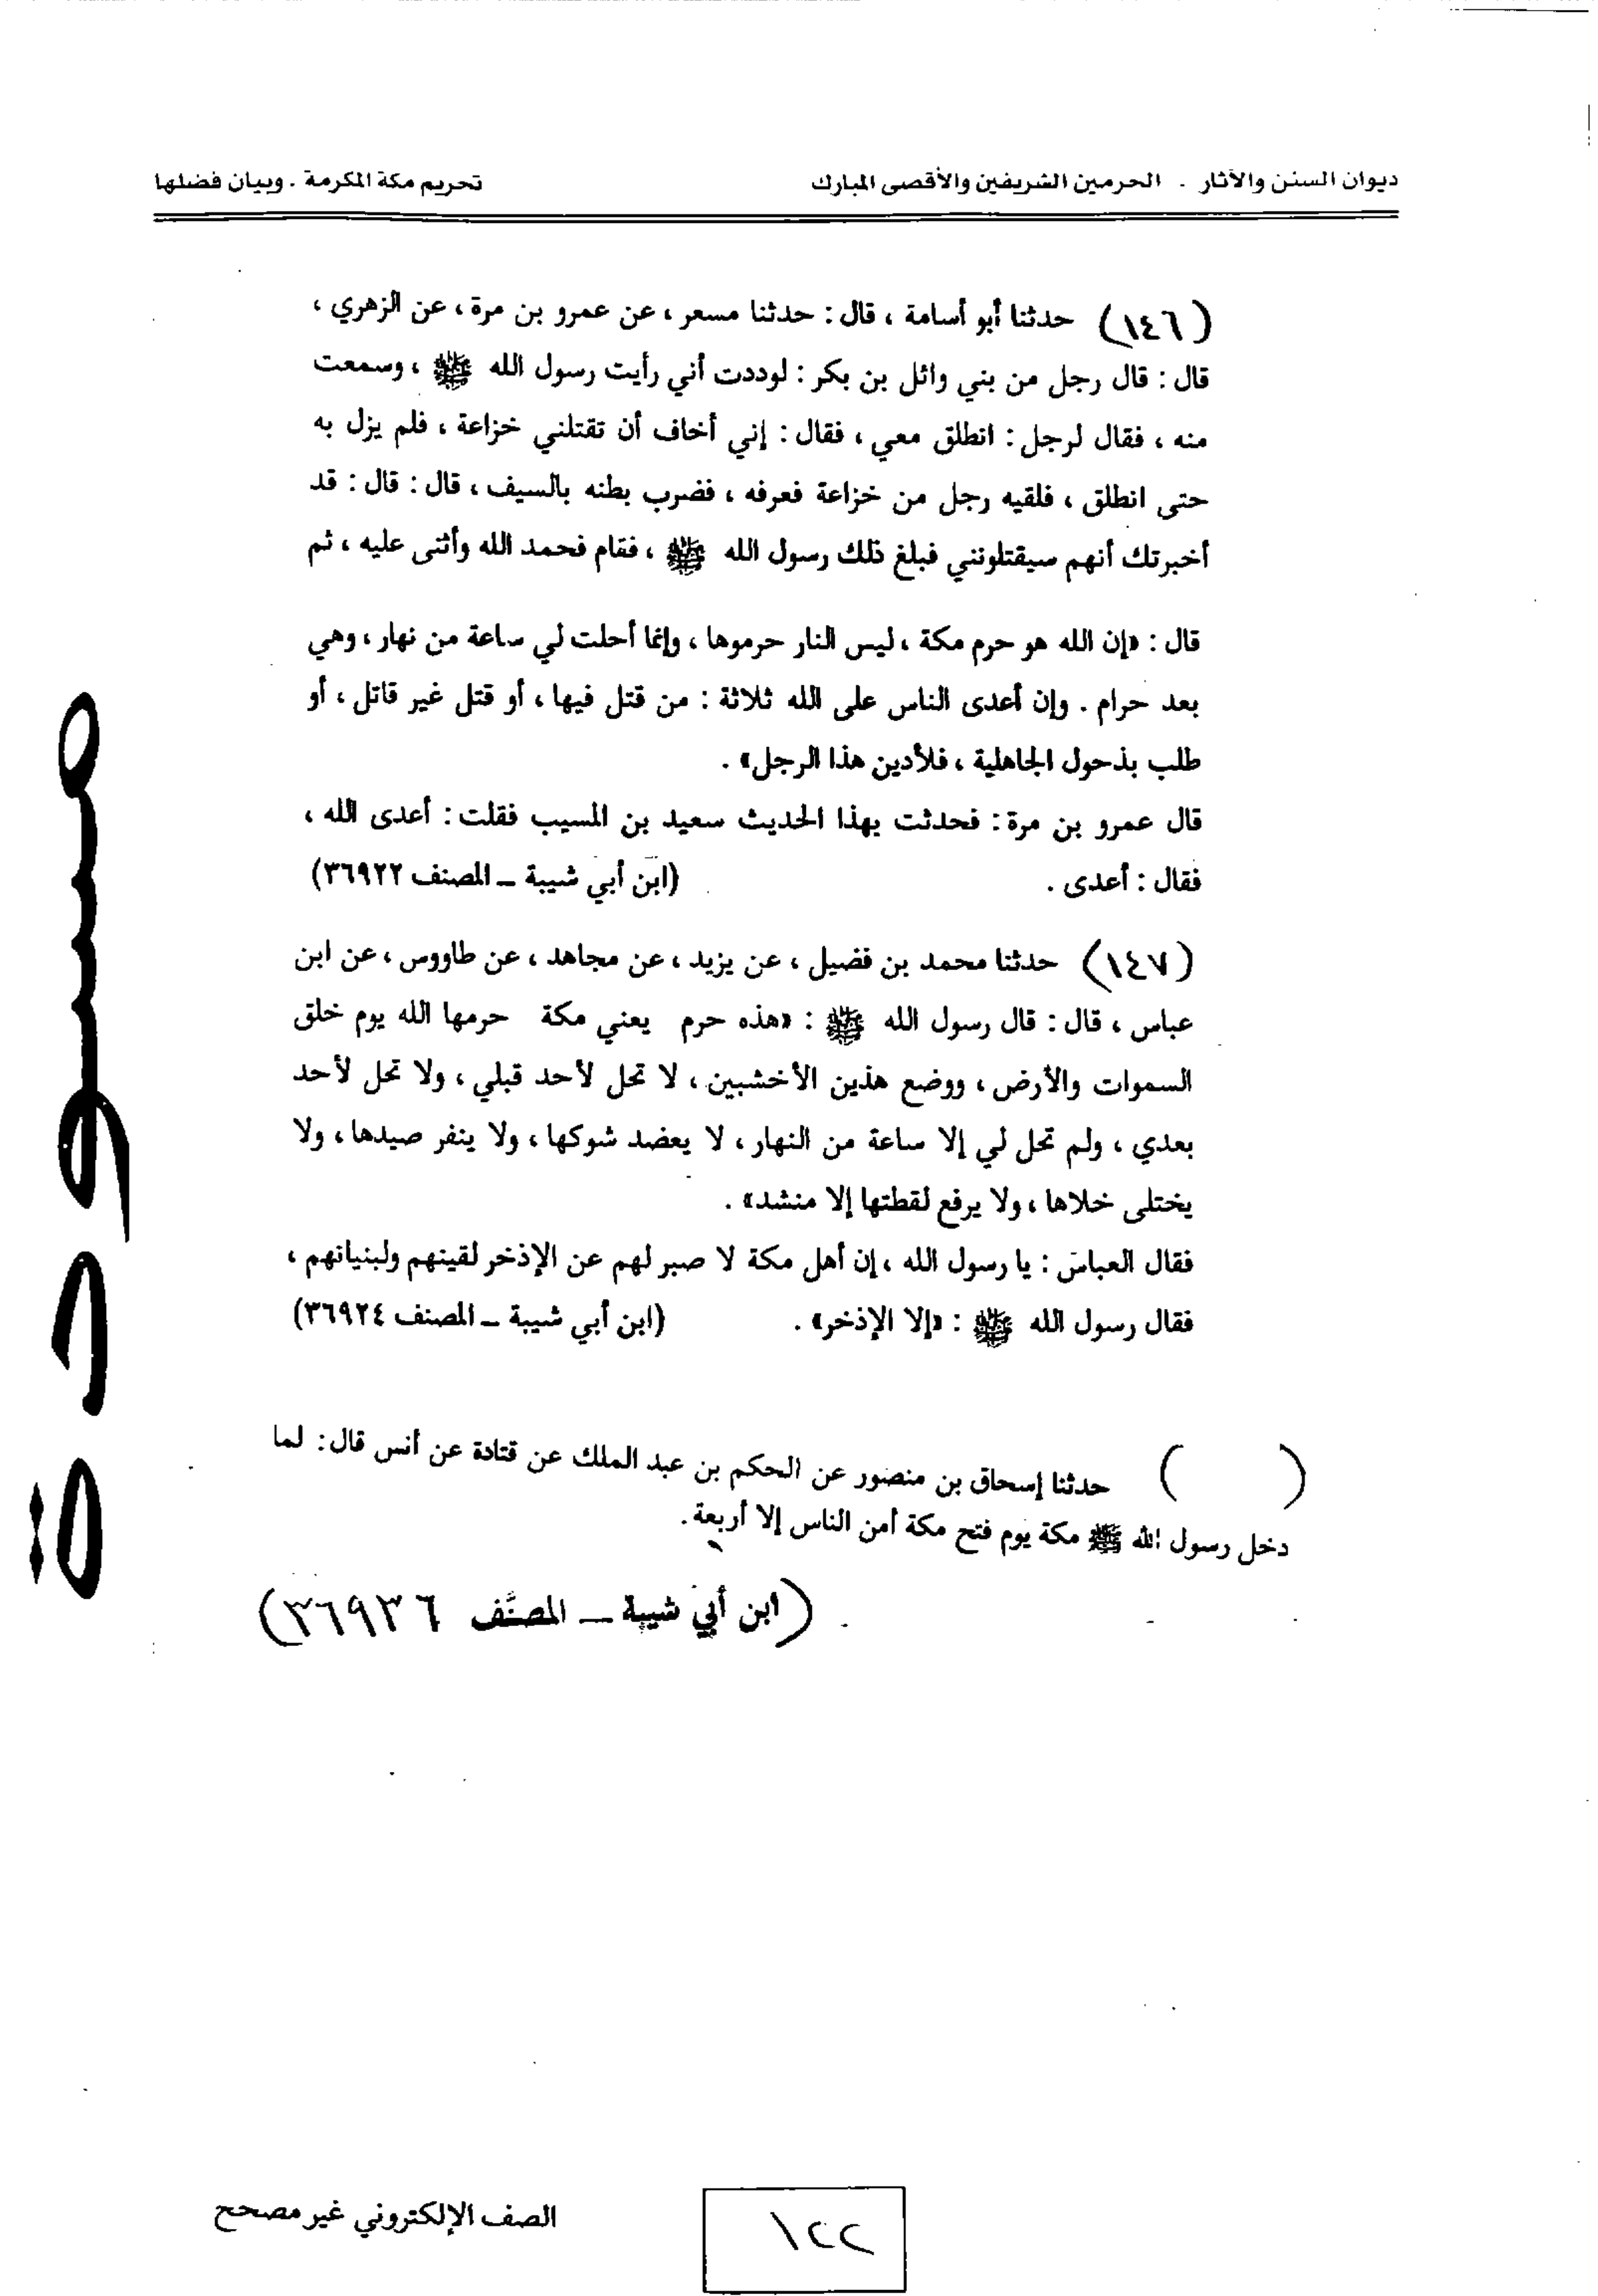 ديوان السنن والآثار . الحرمين الشريفين والأقصى المبارك
تحريم مكة المكرمة . وبيان فضلها
(١٤٦) حدثنا أبو أسامة ، قال : حدثنا مسعر ، عن عمرو بن مرة ، عن الزهري ،
قال : قال رجل من بني وائل بن بكر : لوددت أني رأيت رسول الله ﷺ ، وسمعت
منه ، فقال لرجل : انطلق معي ، فقال : إني أخاف أن تقتلني خزاعة ، فلم يزل به
حتى انطلق ، فلقيه رجل من خزاعة فعرفه ، فضرب بطنه بالسيف ، قال : قال : قد
أخبرتك أنهم سيقتلونني فبلغ ذلك رسول الله ﷺ ، فقام فحمد الله وأثنى عليه ، ثم
قال : «إن الله هو حرم مكة ، ليس النار حرموها ، وإنما أحلت لي ساعة من نهار ، وهي
بعد حرام . وإن أعدى الناس على الله ثلاثة : من قتل فيها ، أو قتل غير قاتل ، أو
طلب بذحول الجاهلية ، فلأدين هذا الرجل» .
قال عمرو بن مرة : فحدثت بهذا الحديث سعيد بن المسيب فقلت : أعدى الله ،
فقال : أعدى . (ابن أبي شيبة ــ المصنف ٣٦٩٢٢)
(١٤٧) حدثنا محمد بن فضيل ، عن يزيد ، عن مجاهد ، عن طاووس ، عن ابن
عباس ، قال : قال رسول الله ﷺ : «هذه حرم يعني مكة حرمها الله يوم خلق
السموات والأرض ، ووضع هذين الأخشبين ، لا تحل لأحد قبلي ، ولا تحل لأحد
بعدي ، ولم تحل لي إلا ساعة من النهار ، لا يعضد شوكها ، ولا ينفر صيدها ، ولا
يختلى خلاها ، ولا يرفع لقطتها إلا منشد» .
فقال العباس : يا رسول الله ، إن أهل مكة لا صبر لهم عن الإذخر لقينهم ولبنيانهم ،
فقال رسول الله ﷺ : «إلا الإذخر» . (ابن أبي شيبة ــ المصنف ٣٦٩٢٤)
( ) حدثنا إسحاق بن منصور عن الحكم بن عبد الملك عن قتادة عن أنس قال: لما
دخل رسول الله ﷺ مكة يوم فتح مكة أمن الناس إلا أربعة.
(ابن أبي شيبة ــ المصنَّف ٣٦٩٣٦)
مسودة
١٢٢
الصف الإلكتروني غير مصحح